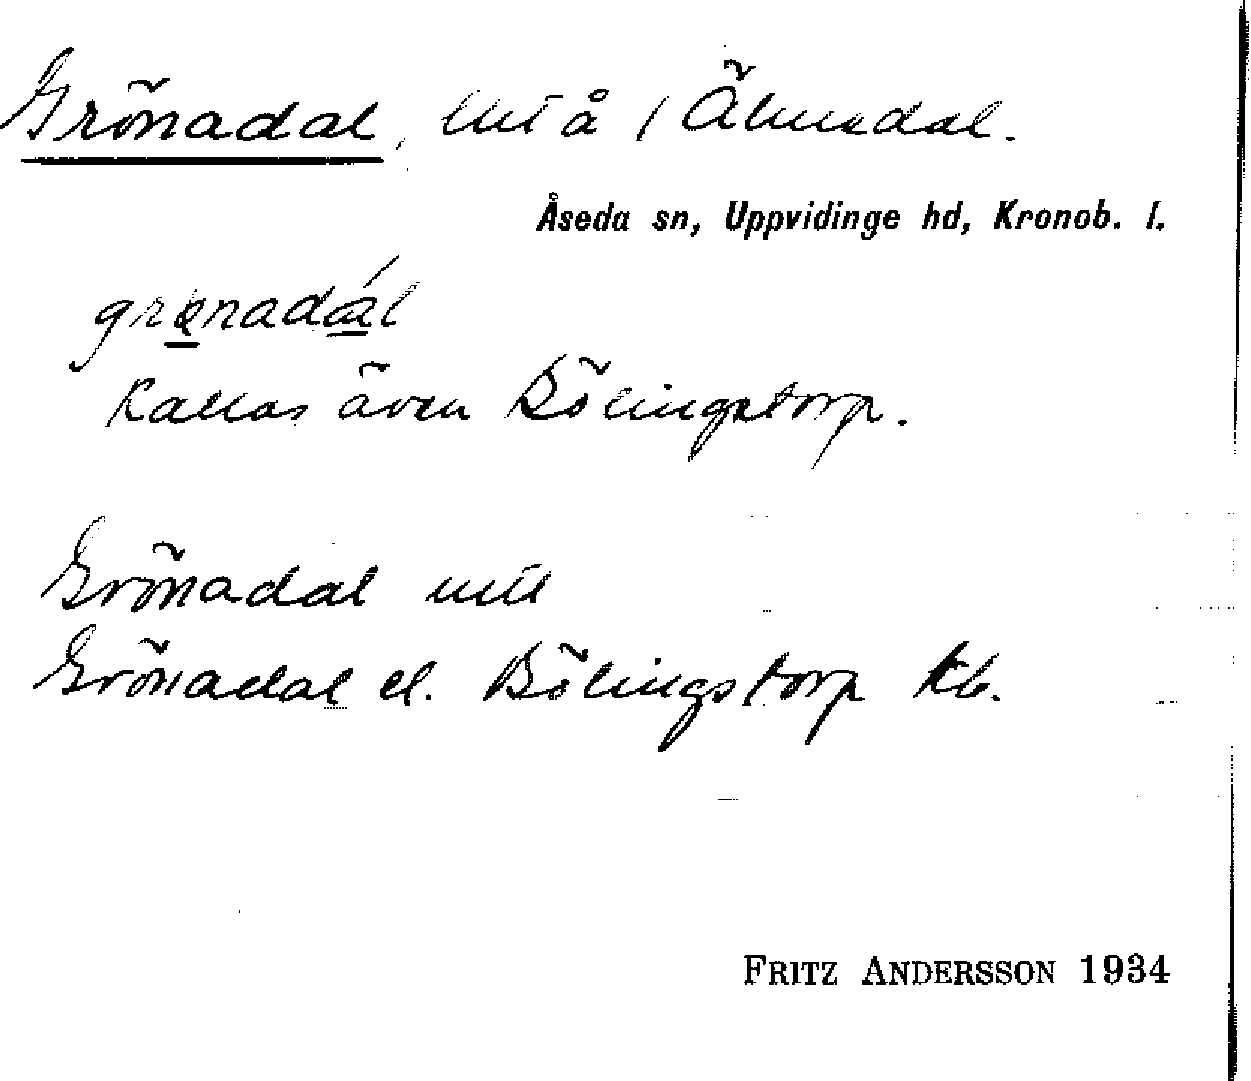 Grönadal, lht å / Älmedal.
Åseda sn, Uppvidinge hd, Kronob. l.
grønadál
Kallas även Bölingstorp.
Grönadal
Grönadal el. Bölingstorp Kb.
FRITZ ANDERSSON 1934